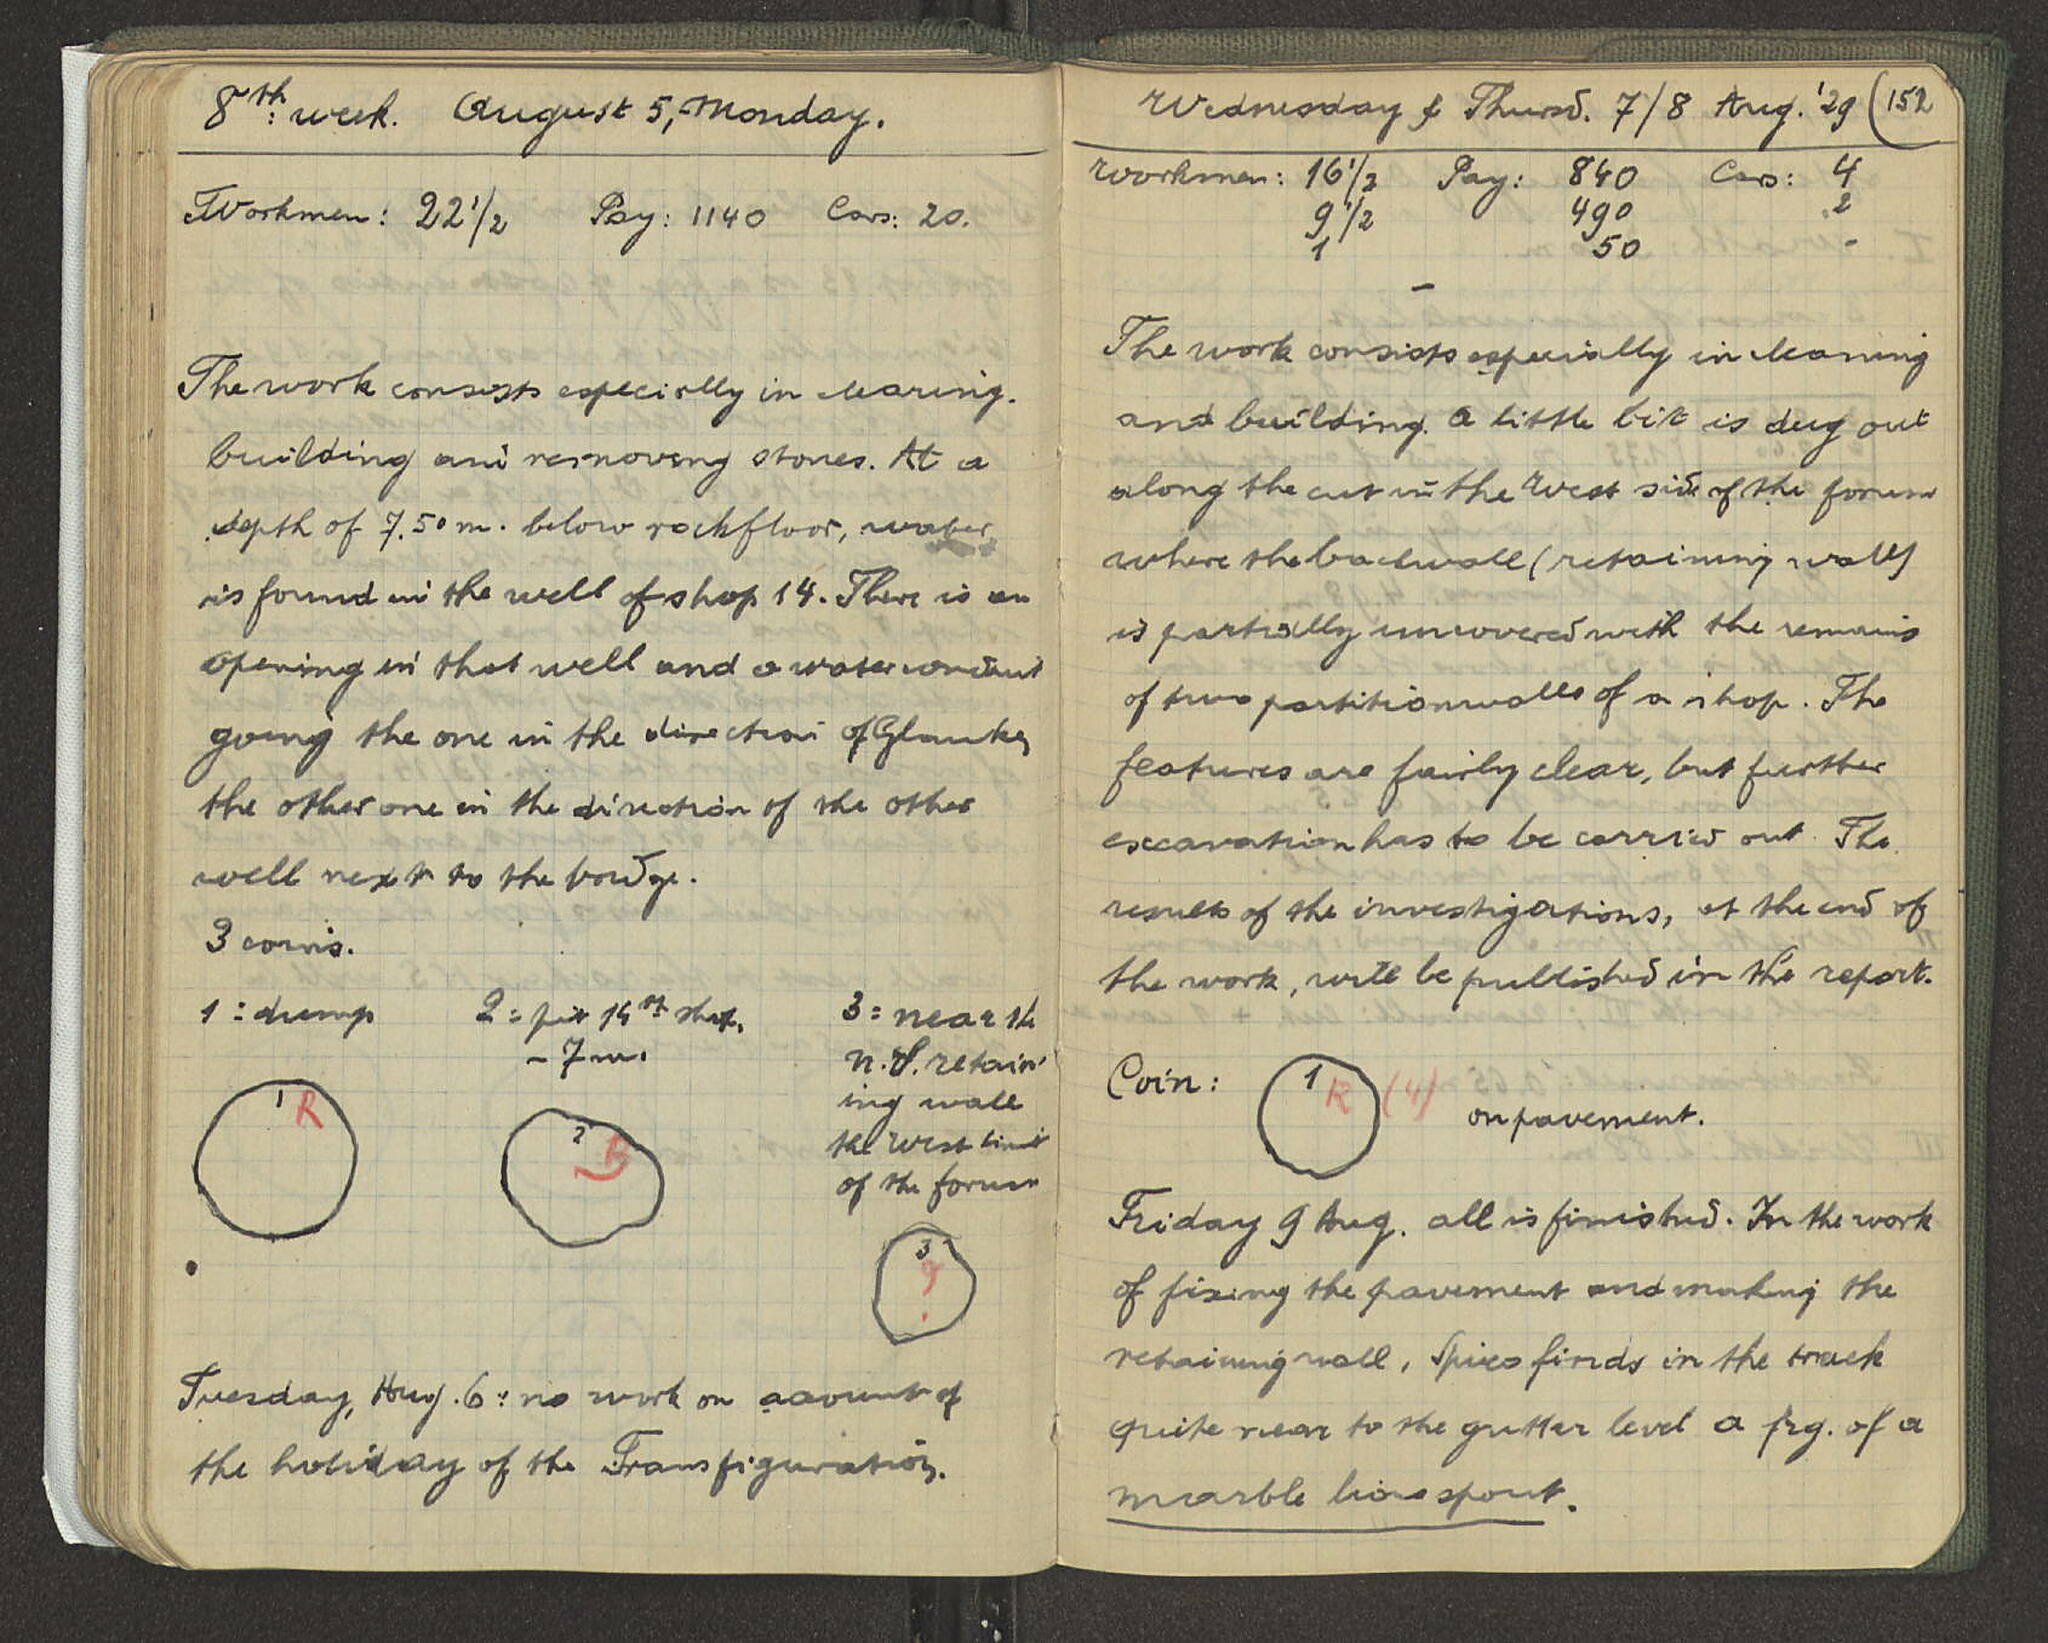 8th: week. August 5, Monday.
Workmen: 22 1/2 Pay: 1140 Cars: 20.
The work consists especially in clearing.
building and removing stones. At a
depth of 7.50 m. below rockfloor, water
is found in the well of shop 14. There is an
opening in that well and a waterconduit
going the one in the direction of Glauke,
the other one in the direction of the other
well next to the bridge.
3 coins.
1 : dump
2 = pit 14th shop.
- 7 m.
3 = near the
n.S. retain
ing wall
the west limit
of the forum
1 R
2 R
3 ?
Tuesday, Aug. 6 : no work on account of
the holiday of the Transfiguration.
Wednesday & Thursd. 7/8 Aug. '29 (152
Workmen: 16 1/2 Pay: 840 Cars: 4
9 1/2 490 2
1 50 -
-
The work consists especially in cleaning
and building. A little bit is dug out
along the cut in the West side of the forum
where the backwall (retaining wall)
is partially uncovered with the remains
of two partitionwalls of a shop. The
features are fairly clear, but further
excavation has to be carried out. The
results of the investigations, at the end of
the work, will be published in the report.
Coin: 1 R (4) on pavement.
Friday 9 Aug. all is finished. In the work
of fixing the pavement and making the
retaining wall, Spiro finds in the track
quite near to the gutter level a frg. of a
marble lions spout.